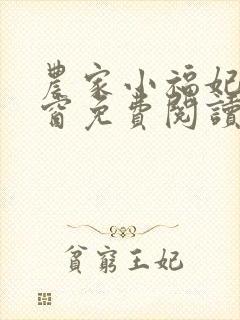 農家小福妃
窗免費閱讀
貧窮王妃